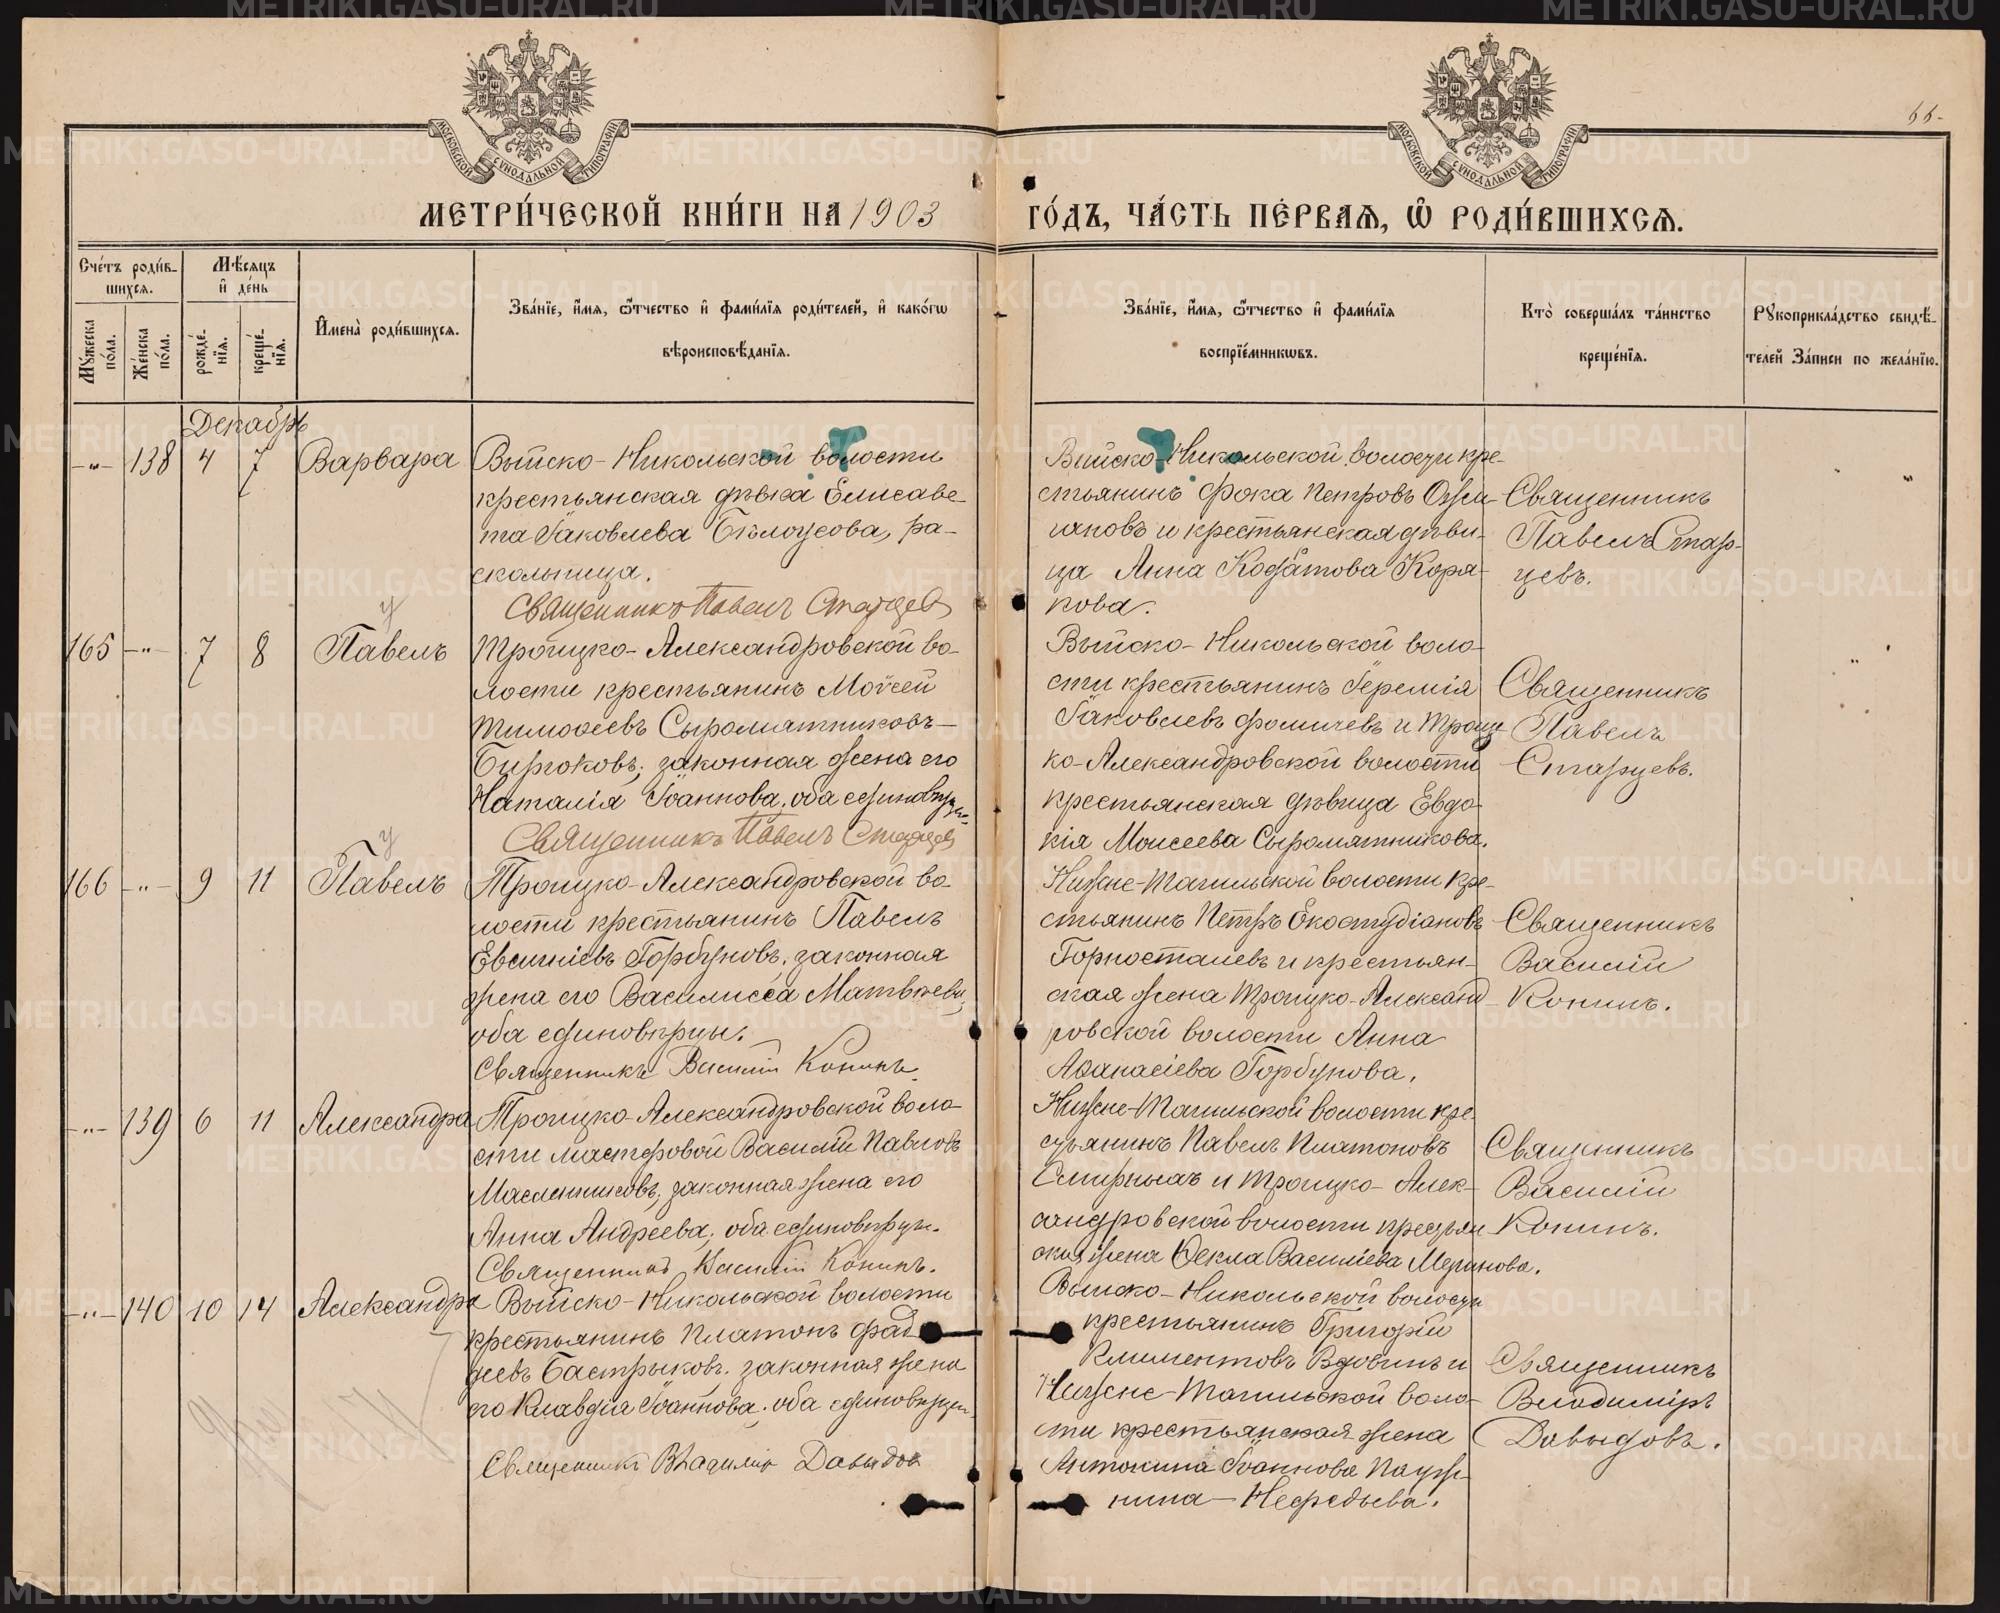 METRIKI.GASO-URAL.RU
МОСКОВСКОЙ СѴНОДАЛЬНОЙ ТИПОГРАФІИ
МОСКОВСКОЙ СѴНОДАЛЬНОЙ ТИПОГРАФІИ
66
МЕТРИ́ЧЕСКОЙ КНИ́ГИ НА 1903 ГО́ДЪ, ЧА́СТЬ ПЕ́РВАЯ, Ѡ РОДИ́ВШИХСЯ.
Сче́тъ роди́в-
шихся.
Мѣ́сяцъ
и де́нь
Мꙋжеска
по́ла.
Же́нска
по́ла.
рожде́-
нїя.
креще́-
нїя.
Имена̀ роди́вшихся.
Зва́нїе, и́мя, ѻ́тчество и фами́лїя роди́телей, и како́гѡ
вѣроисповѣ́данїя.
Зва́нїе, и́мя, ѻ́тчество и фами́лїя
воспрїе́мникѡвъ.
Кто̀ соверша́лъ та́инство
креще́нїя.
Рꙋкоприкла́дство свидѣ́-
телей За́писи по жела́нїю.
Декабрь
-"- 138 4 7 Варвара
Выйско-Никольской волости
крестьянская дѣвка Елисаве-
та Іаковлева Бѣлоусова, ра-
скольница.
Священникъ Павелъ Старцев
Выйско-Никольской волости кре-
стьянинъ Фока Петровъ Ожи-
гановъ и крестьянская дѣви-
ца Анна Кодратова Коря-
кова.
Священникъ
Павелъ Стар-
цевъ.
"
165 -"- 7 8 Павелъ
Троицко-Александровской во-
лости крестьянинъ Мойсей
Тимоѳеевъ Сыромятниковъ-
Бирюковъ, законная жена его
Наталія Іоаннова, оба единовѣрц.
Священникъ Павелъ Старцев
Выйско-Никольской воло-
сти крестьянинъ Іеремія
Іаковлевъ Фомичевъ и Троиц-
ко-Александровской волости
крестьянская дѣвица Евдо-
кія Моисеева Сыромятникова.
Священникъ
Павелъ
Старцевъ.
"
166 -"- 9 11 Павелъ
Троицко-Александровской во-
лости крестьянинъ Павелъ
Евсигніевъ Горбуновъ, законная
жена его Василисса Матвѣева,
оба единовѣрцы.
Священникъ Василій Конинъ.
Нижне-Тагильской волости кре-
стьянинъ Петръ Екостудіановъ
Горносталевъ и крестьян-
ская жена Троицко-Александ-
ровской волости Анна
Аѳанасіева Горбунова.
Священникъ
Василій
Конинъ.
-"- 139 6 11 Александра
Троицко-Александровской воло-
сти мастеровой Василій Павловъ
Масленниковъ, законная жена его
Анна Андреева, оба единовѣрцы.
Священникъ Василій Конинъ.
Нижне-Тагильской волости кре-
стьянинъ Павелъ Платоновъ
Смирныхъ и Троицко-Алек-
сандровской волости крестьян
ская жена Ѳекла Василіева
Священникъ
Василій
Конинъ.
-"- 140 10 14 Александра
Выйско-Никольской волости
крестьянинъ Платонъ Фад
деевъ Бастрыковъ, законная жена
его Клавдія Іоаннова, оба единовѣрцы.
Священникъ Владимір Давыдов
Выйско-Никольской волости
крестьянинъ Григорій
Климентовъ Вдовинъ и
Нижне-Тагильской воло-
сти крестьянская жена
Антонина Іоаннова Пауж-
нина-Нефедьева.
Священникъ
Владиміръ
Давыдовъ.